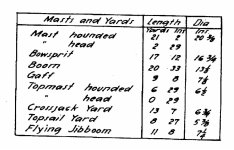 Masts and Yards Length Dia
Yards Ins Ins
Mast hounded 21 2 20 3/4
" head 2 29
Bowsprit 17 12 16 3/4
Boom 20 33 13 1/2
Gaff 9 8 7 1/2
Topmast hounded 6 29 6 1/2
" head 0 29
Crossjack Yard 13 7 6 3/4
Topsail Yard 8 27 5 7/8
Flying Jibboom 11 8 7 1/4